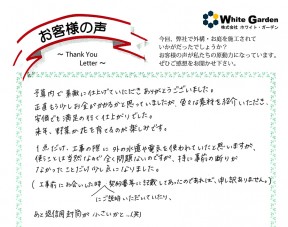 お客様の声
～ Thank You
Letter ～
White Garden
株式会社 ホワイト・ガーデン
今回、弊社で外構・お庭を施工されて
いかがだったでしょうか？
お客様の声が私たちの原動力になっています。
ぜひご感想をお聞かせ下さい。
予算内で素敵に仕上げていただき ありがとうございます。
正直もう少しお金がかかるかと思っていましたが、色々な素材を紹介いただき、
安価でも満足の行く仕上がりでした。
来年、野菜や花を育てるのが楽しみです。
1点だけ、工事の際に外の水道や電気を使われていたと思いますが、
使うことは当然なので全く問題ないのですが、特に事前の断りが
なかったことだけ少し気になりました。
（工事前にお会いした時 契約書等に記載してあったのであれば、申し訳ありません。）
にご説明いただいていたり、
あと返信用封筒が小さいかと…(笑)